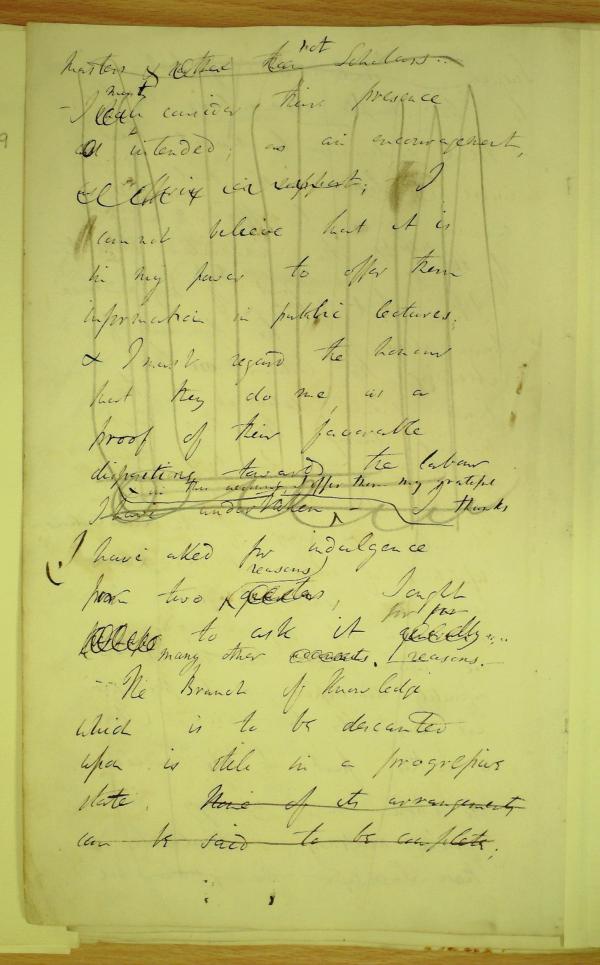 Masters & rather than not Scholars..
- I must consider their presence
as intended; as an encouragement,
as a support; I
cannot believe that it is
in my power to offer them
information in public lectures;
& I must regard the honour
that they do me as a
proof of their favorable
disposition towards the labour
in this account I offer them my grateful
I have undertaken - thanks
I have asked for indulgence
reasons
from two , I ought
for for
to ask it
many other reasons.
- The Branch of Knowledge
which is to be descanted
upon is still in a progressive
state. None of its arrangements
can be said to be complete;